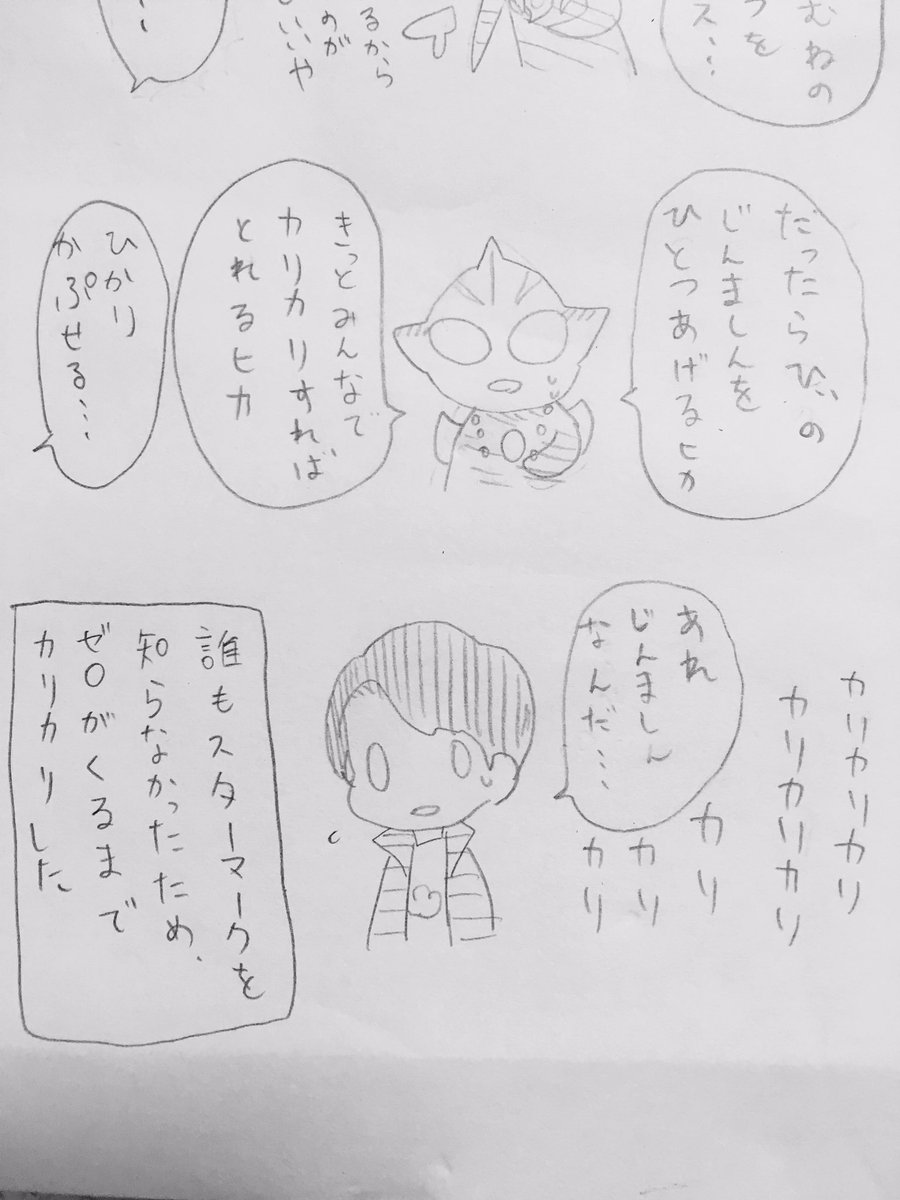 むねの
つを
ス…
るから
のが
いいや
…
だったらひ〝の
じんましんを
ひとつあげるヒカ
きっとみんなで
カリカリすれば
とれるヒカ
ひかり
かぷせる…
カリカリカリ
カリカリカリ
カリ
カリ
カリ
あれ
じんましん
なんだ…
誰もスターマークを
知らなかったため、
ゼロがくるまで
カリカリした。